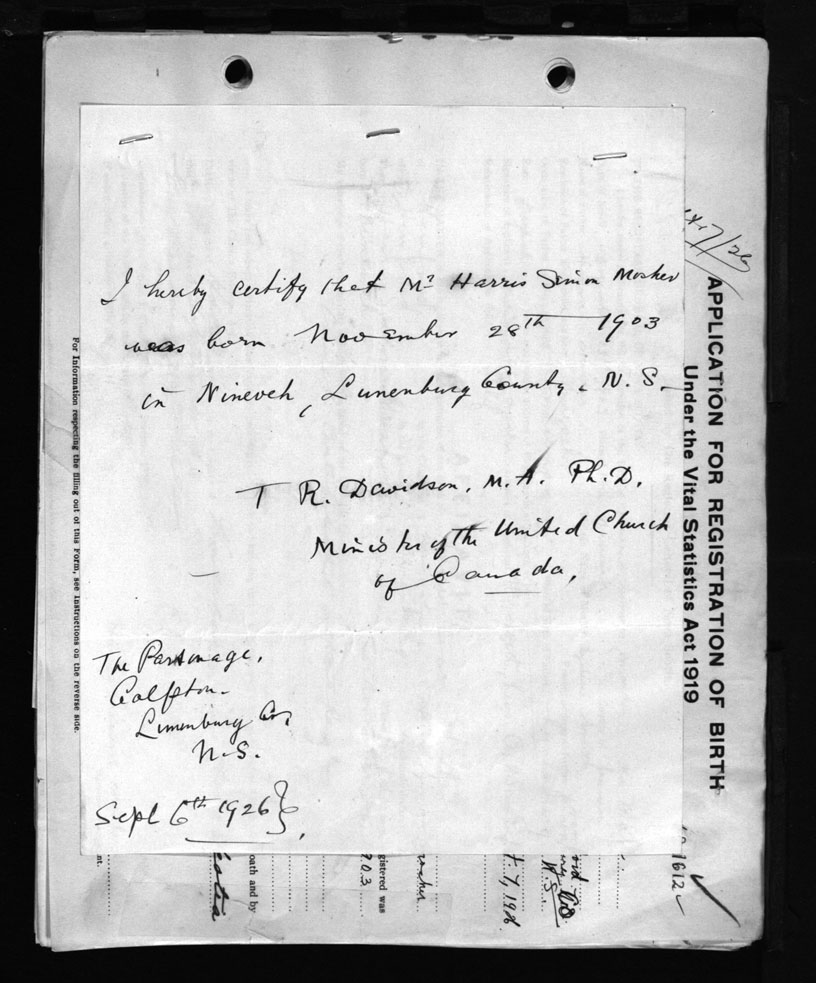 I hereby certify that Mr Harris Simon Mosher
was born November 28th 1903
in Nineveh, Lunenburg County, N. S.
T R. Davidson, M. A. Ph. D.
Minister of the United Church
of Canada,
The Parsonage,
Lunenburg Co,
N. S.
Sept 6th 1926
APPLICATION FOR REGISTRATION OF BIRTH
Under the Vital Statistics Act 1919
For Information respecting the filling out of this Form, see Instructions on the reverse side.
oath and by
gistered was
903
N.S.
1612
nt.